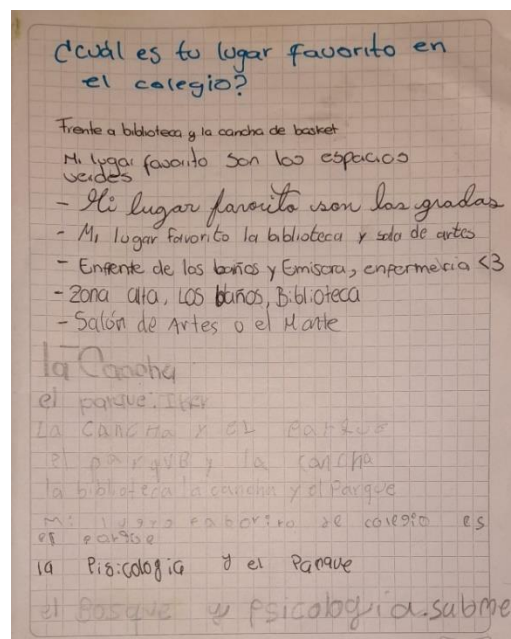 ¿Cuál es tu lugar favorito en
el colegio?
Frente a biblioteca y la cancha de basket
Mi lugar favorito son los espacios
verdes
- Mi lugar favorito son las gradas
- Mi lugar favorito la biblioteca y sala de artes
- Enfente de los baños y Emisora, enfermeria <3
- Zona alta, Los baños, Biblioteca
- Salón de Artes o el
la Cancha
el parque.
La CANCHA Y EL PARQUE
el parqUB y la cancha
la biblioteca la cancha y el Parque
Mi faborito de colegio es
el parque
la Pisicologia y el Parque
el Bosque y psicologia.